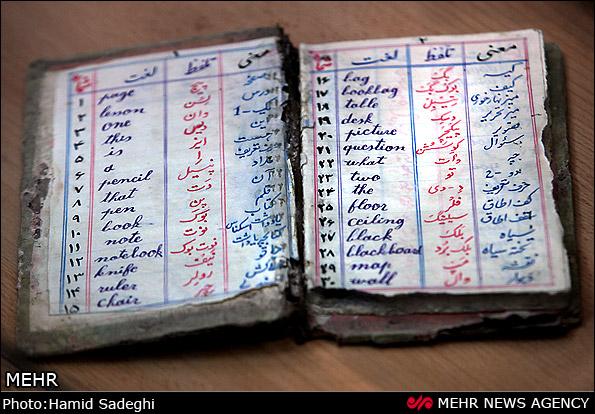 ۱
شماره لغت تلفظ معنی
۱ page پیج صفحه
۲ lesson لسن درس
۳ one وان یک-1
۴ this دیس این
۵ is ایز
۶ a ا
۷ pencil پنسیل مداد
۸ that دت آن
۹ pen پن قلم
۱۰ book بوک کتاب
۱۱ note نوت
۱۲ notebook نوت بوک
۱۳ knife نیف چاقو
۱۴ ruler رولر
۱۵ chair چیر
۲
لغت تلفظ معنی
۱۶ bag بگ کیسه
۱۷ bookbag بوک بگ کیف
۱۸ table تیبل میز نهارخوری
۱۹ desk دسک میز تحریر
۲۰ picture پیکچر تصویر
۲۱ question کوسشن سئوال
۲۲ what وات چه
۲۳ two تو دو-2
۲۴ the د-دی حرف تعریف
۲۵ floor فلور کف اطاق
۲۶ ceiling سیلینگ سقف اطاق
۲۷ black بلک سیاه
۲۸ blackboard بلک برد تخته سیاه
۲۹ map مپ نقشه
۳۰ wall وال دیوار
MEHR
Photo:Hamid Sadeghi
MEHR NEWS AGENCY